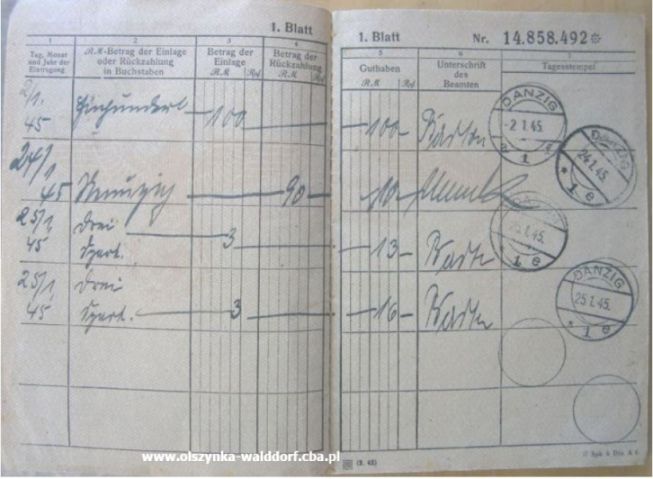 1. Blatt
1 2 3 4
Tag, Monat und Jahr der Eintragung
RM-Betrag der Einlage oder Rückzahlung in Buchstaben
Betrag der Einlage
RM Rpf
Betrag der Rückzahlung
RM Rpf
2/1. 45 Einhundert — 100 —
24/1. 45 Neunzig — 90 —
25/1 45 Drei — 3 —
25/1 45 Drei — 3 —
1. Blatt Nr. 14.858.492*
5 6 7
Guthaben
RM Rpf
Unterschrift des Beamten
Tagesstempel
— 100 —
DANZIG
-2.1.45.
1
10
DANZIG
24.1.45.
* 1 e
— 13 —
25.1.45.
1 e
— 16 —
DANZIG
25.1.45.
* 1 e
www.olszynka-walddorf.cba.pl